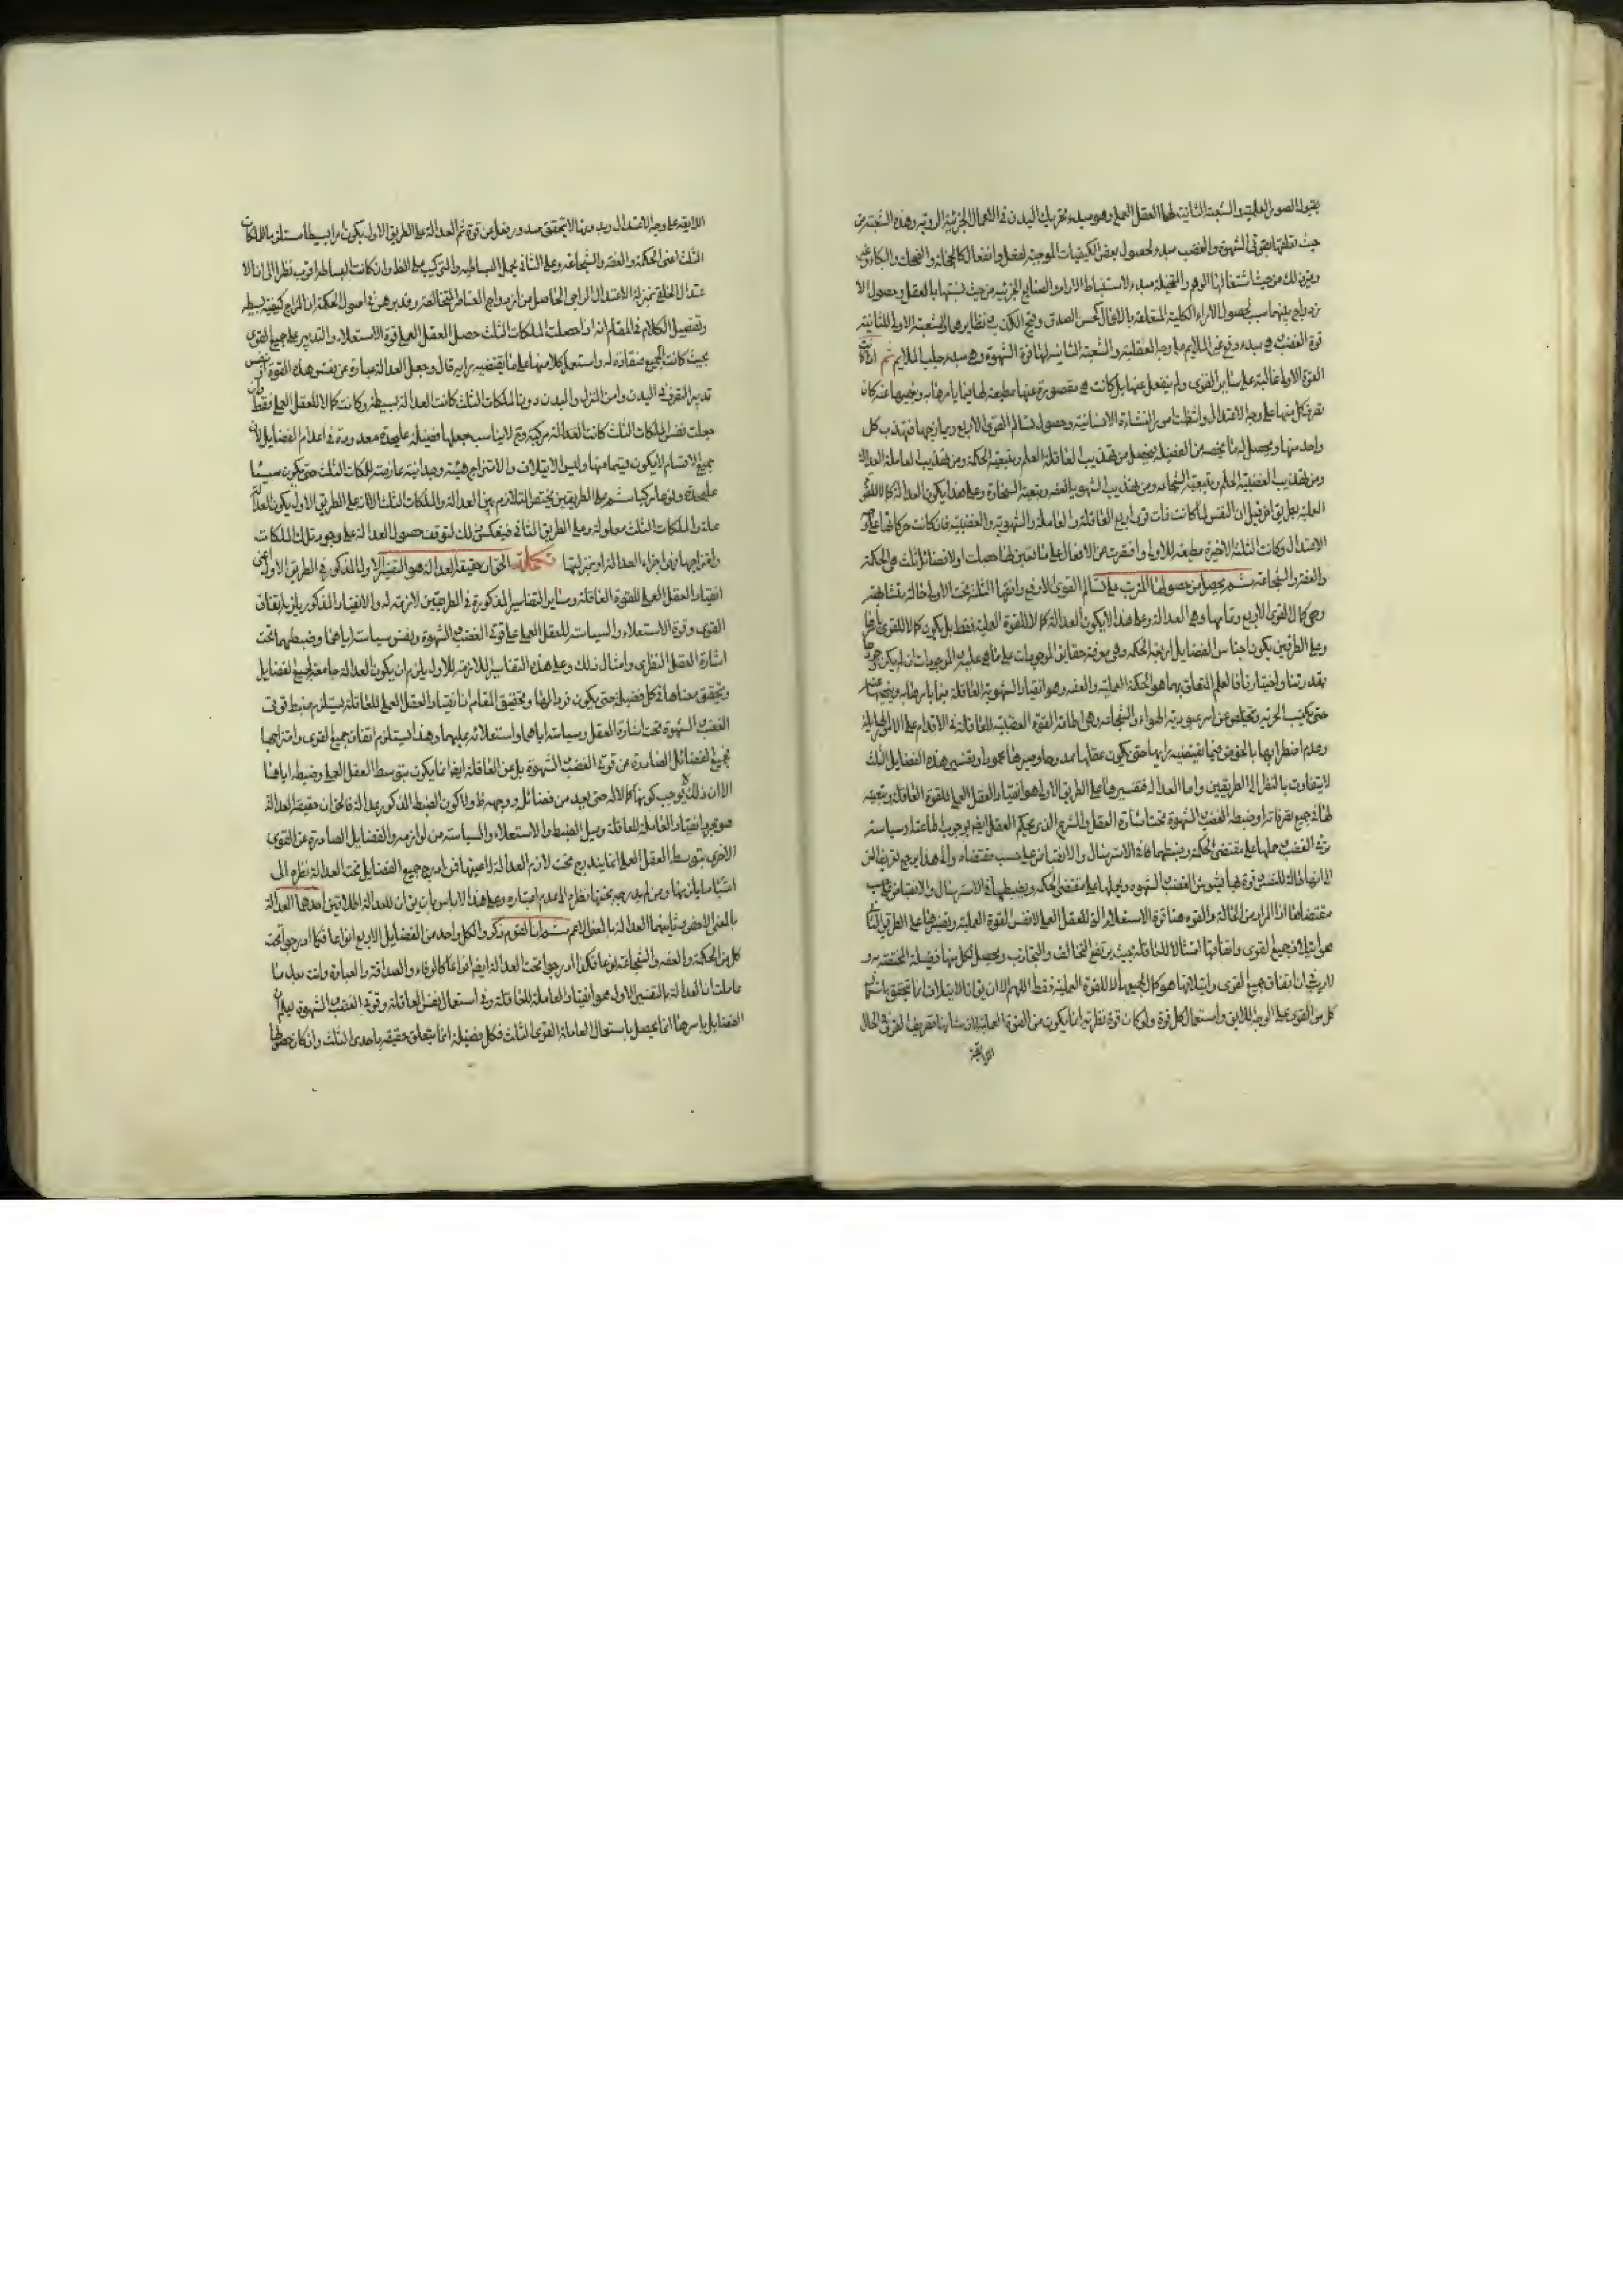 بقبول الصور العلمية والشعبة الثانية لها العقل العملي وهو مبدء تحريك البدن في الاعمال الجزئية الروية وهذه الشعبة من
حيث تعلقها بقوتي الشهوة والغضب مبدء لحصول بعض الكيفيات الموجبة لفعل وانفعال كالخجلة والضحك والبكاء وغير
ومن حيث اشتغالها الوهم والمتخيلة مبدء لاستنباط الاراء والصنايع الجزئية ومن حيث نسبتها بالعقل وحصول الا
زدواج بينهما سبب لحصول الآراء الكلية المتعلقة بالاعمال كحسن الصدق وقبح الكذب ونظايرهما والشعبة الاولى للثانية
قوة الغضب وهي مبدء دفع غير الملايم على وجه العقلية والشعبة الثانية لها قوة الشهوة وهي مبدء جلب الملايم ثم اذا كانت
القوة الاولى غالبة على سائر القوى ولم ينفعل عنها بل كانت هي مقصورة عنها مطيعة لها فيما يامرها به وينهيها عنه كان
تصرف كل منها على وجه الاعتدال وانتظمت امور النشاءة الانسانية وحصول تسالم القوى الاربع وتمازجها فتهذب كل
واحد منها ويحصل له ما يخصه من الفضيلة فيحصل من تهذيب العاقلة العلم وتتبعه الحكمة ومن تهذيب العاملة العدالة
ومن تهذيب الغضبية الحلم وتتبعه الشجاعة ومن تهذيب الشهوية العفة وتتبعه السخاوة وعلى هذا يكون العدالة كمالا للقوة
العملية بطريق اخر قيل ان النفس لما كانت ذات قوى اربع العاقلة والعاملة والشهوية والغضبية فان كانت حركاتها على وجه
الاعتدال وكانت الثلثة الاخيرة مطيعة للاولى واقتصرت من الافعال على ما تعين لها حصلت اولا فضائل ثلث هي الحكمة
والعفة والشجاعة ثم يحصل من حصولها المترتب على تسالم القوى الاربع وانقهار الثلثة تحت الاولى حالة متشابهة
وهي كمال القوى الاربع وتمامها وهي العدالة وعلى هذا لا يكون العدالة كمالا للقوة العملية فقط بل يكون كمالا للقوى باسرها
وعلى الطريقين يكون اجناس الفضايل اربعة الحكمة وهي معرفة حقايق الموجودات على ما هي عليه والموجودات ان لم يكن وجودها
بقدرتنا واختيارنا فالعلم المتعلق بهما هو الحكمة العملية والعفة وهو انقياد الشهوية للعاقلة فيما يامرها به وينهيها عنه
حتى تكتسب الحرية وتتخلص عن اسر عبودية الهواء والشجاعة وهي اطاعة القوة الغضبية للعاقلة في الاقدام على الامور الهايلة
وعدم اضطرابها بالخوض فيما يقتضيه رايها حتى يكون فعلها ممدوحا وصبرها محمودا وتفسير هذه الفضايل الثلث
لا يتفاوت بالنظر الى الطريقين واما العدالة فتفسيرها على الطريق الاول هو انقياد العقل العملي للقوة العاقلة وتبعيته
لها في جميع تصرفاته او ضبطه الغضب والشهوة تحت اشارة العقل والشرع الذي يحكم العقل ايضا بوجوب اطاعته او سياسة
قوتي الغضب وحملها على مقتضى الحكمة وضبطهما في الاسترسال والانقباض على حسب مقتضاه والى هذا يرجع تعريف الغزالي
انها حالة للنفس وقوة بها يسوس الغضب والشهوة ويحملها على مقتضى الحكمة ويضبطها في الاسترسال والانقباض على حسب
مقتضاها اذ المراد من الحالة والقوة هنا قوة الاستعلاء التي للعقل العملي لا نفس القوة العملية وتفسيرها على الطريق الثاني
هو ايتلاف جميع القوى واتفاقها امتثالا للعاقلة بحيث يرتفع التخالف والتجاذب ويحصل لكل منها فضيلة المختصة به و
لا ريب ان اتفاق جميع القوى وايتلافها هو كمال لجميعها لا للقوة العملية فقط اللهم الا ان يقال ان الايتلاف انما يتحقق باستعمال
كل من القوى على الوجه اللايق واستعمال كل قوة ولو كان قوة نظرية انما يكون من القوة العملية لان شانها تصريف القوى في المحال
اللايقة
اللايقة على وجه الاعتدال وبدونها لا يتحقق صدور فعل عن قوة ثم العدالة على الطريق الاول يكون امرا بسيطا مستلزما للملكات
الثلث اعني الحكمة والعفة والشجاعة وعلى الثاني يحتمل البساطة والتركيب على الظاهر وان كانت البساطة اقرب نظرا الى ان الا
عتدال الخلقي بمنزلة الاعتدال المزاجي الحاصل من ازدواج العناصر المتخالفة وقد برهن في اصول الحكمة ان المزاج كيفية بسيطة
وتفصيل الكلام في المقام انه اذا حصلت الملكات الثلث حصل للعقل العملي قوة الاستعلاء والتدبير على جميع القوى
بحيث كانت الجميع منقادة له واستعمل كلا منها على ما يقتضيه رايه قال وجعل العدالة عبارة عن نفس هذه القوة او نفس
تدبير التصرف في البدن وامر المنزل والبدن دون الملكات الثلث كانت العدالة بسيطة وكانت كمالا للعقل العملي فقط وان
جعلت نفس الملكات الثلث كانت العدالة مركبة وح لا يناسب جعلها فضيلة عليحدة معدودة في اعداد الفضايل لان
جميع الاقسام لا يكون قسما منها وليس الايتلاف والامتزاج هيئة وحدانية عارضة للملكات الثلث حتى يكون سببا
عليحدة ونوعا مركبا ثم على الطريقين يختص التلازم بين العدالة والملكات الثلث الا انه على الطريق الاول يكون العدالة
علة والملكات الثلث معلولة وعلى الطريق الثاني فينعكس ذلك لتوقف حصول العدالة على وجود تلك الملكات
وامتزاجها فهي اجزاء العدالة او بمنزلتها تكملة الحق ان حقيقة العدالة هو التفسير الاول المذكور في الطريق الاول اعني
انقياد العقل العملي للقوة العاقلة وساير التفاسير المذكورة في الطريقين لازمة له والانقياد المذكور يلزم اتفاق
القوى وقوة الاستعلاء والسياسة للعقل العملي على قوتي الغضب والشهوة ونفس سياسته اياهما وضبطهما تحت
اشارة العقل النظري وامثال ذلك وعلى هذه التفاسير اللازمة للاول يلزم ان يكون العدالة جامعة لجميع الفضايل
ويتحقق معناها في كل فضيلة حتى يكون فردا لها وتحقيق المقام ان انقياد العقل العملي للعاقلة يستلزم ضبط قوتي
الغضب والشهوة تحت اشارة العقل وسياسته اياهما واستعلائه عليهما وهذا يستلزم اتفاق جميع القوى وامتزاجها
فجميع الفضائل الصادرة عن قوتي الغضب والشهوة بل عن العاقلة ايضا انما يكون بتوسط العقل العملي وضبطه اياها
الا ان ذلك لا يوجب كونها كمالا له حتى يعد من فضائله ووجهه ظ ولا كون الضبط المذكور عدالة فالحق ان حقيقة العدالة
هو مجرد انقياد العاملة للعاقلة ومثل الضبط والاستعلاء والسياسة من لوازمه والفضايل الصادرة عن القوى
الاخرى بتوسط العقل العملي انما يندرج تحت لازم العدالة لا عينها فمن ادرج جميع الفضايل تحت العدالة نظره الى
اعتبار ما يلزمها ومن لم يدرجها تحتها نظره الى عدم اعتباره وعلى هذا لا باس بان يق ان للعدالة اطلاقين احدهما العدالة
بالمعنى الاخص وثانيهما العدالة بالمعنى الاعم ثم ان القوم ذكروا لكل واحد من الفضايل الاربع انواعا فكما ادرجوا تحت
كل من الحكمة والعفة والشجاعة انواعا فكذا ادرجوا تحت العدالة ايضا انواعا كالوفاء والصداقة والعبادة وانت بعد ما
علمت ان العدالة بالتفسير الاول هو انقياد العاملة للعاقلة وفي استعمال نفس العاقلة وقوتي الغضب والشهوة تعلم ان
الفضايل باسرها انما يحصل باستعمال العاملة القوى الثلث فكل فضيلة انما يتعلق حقيقة باحدى الثلث وان كان حصولها